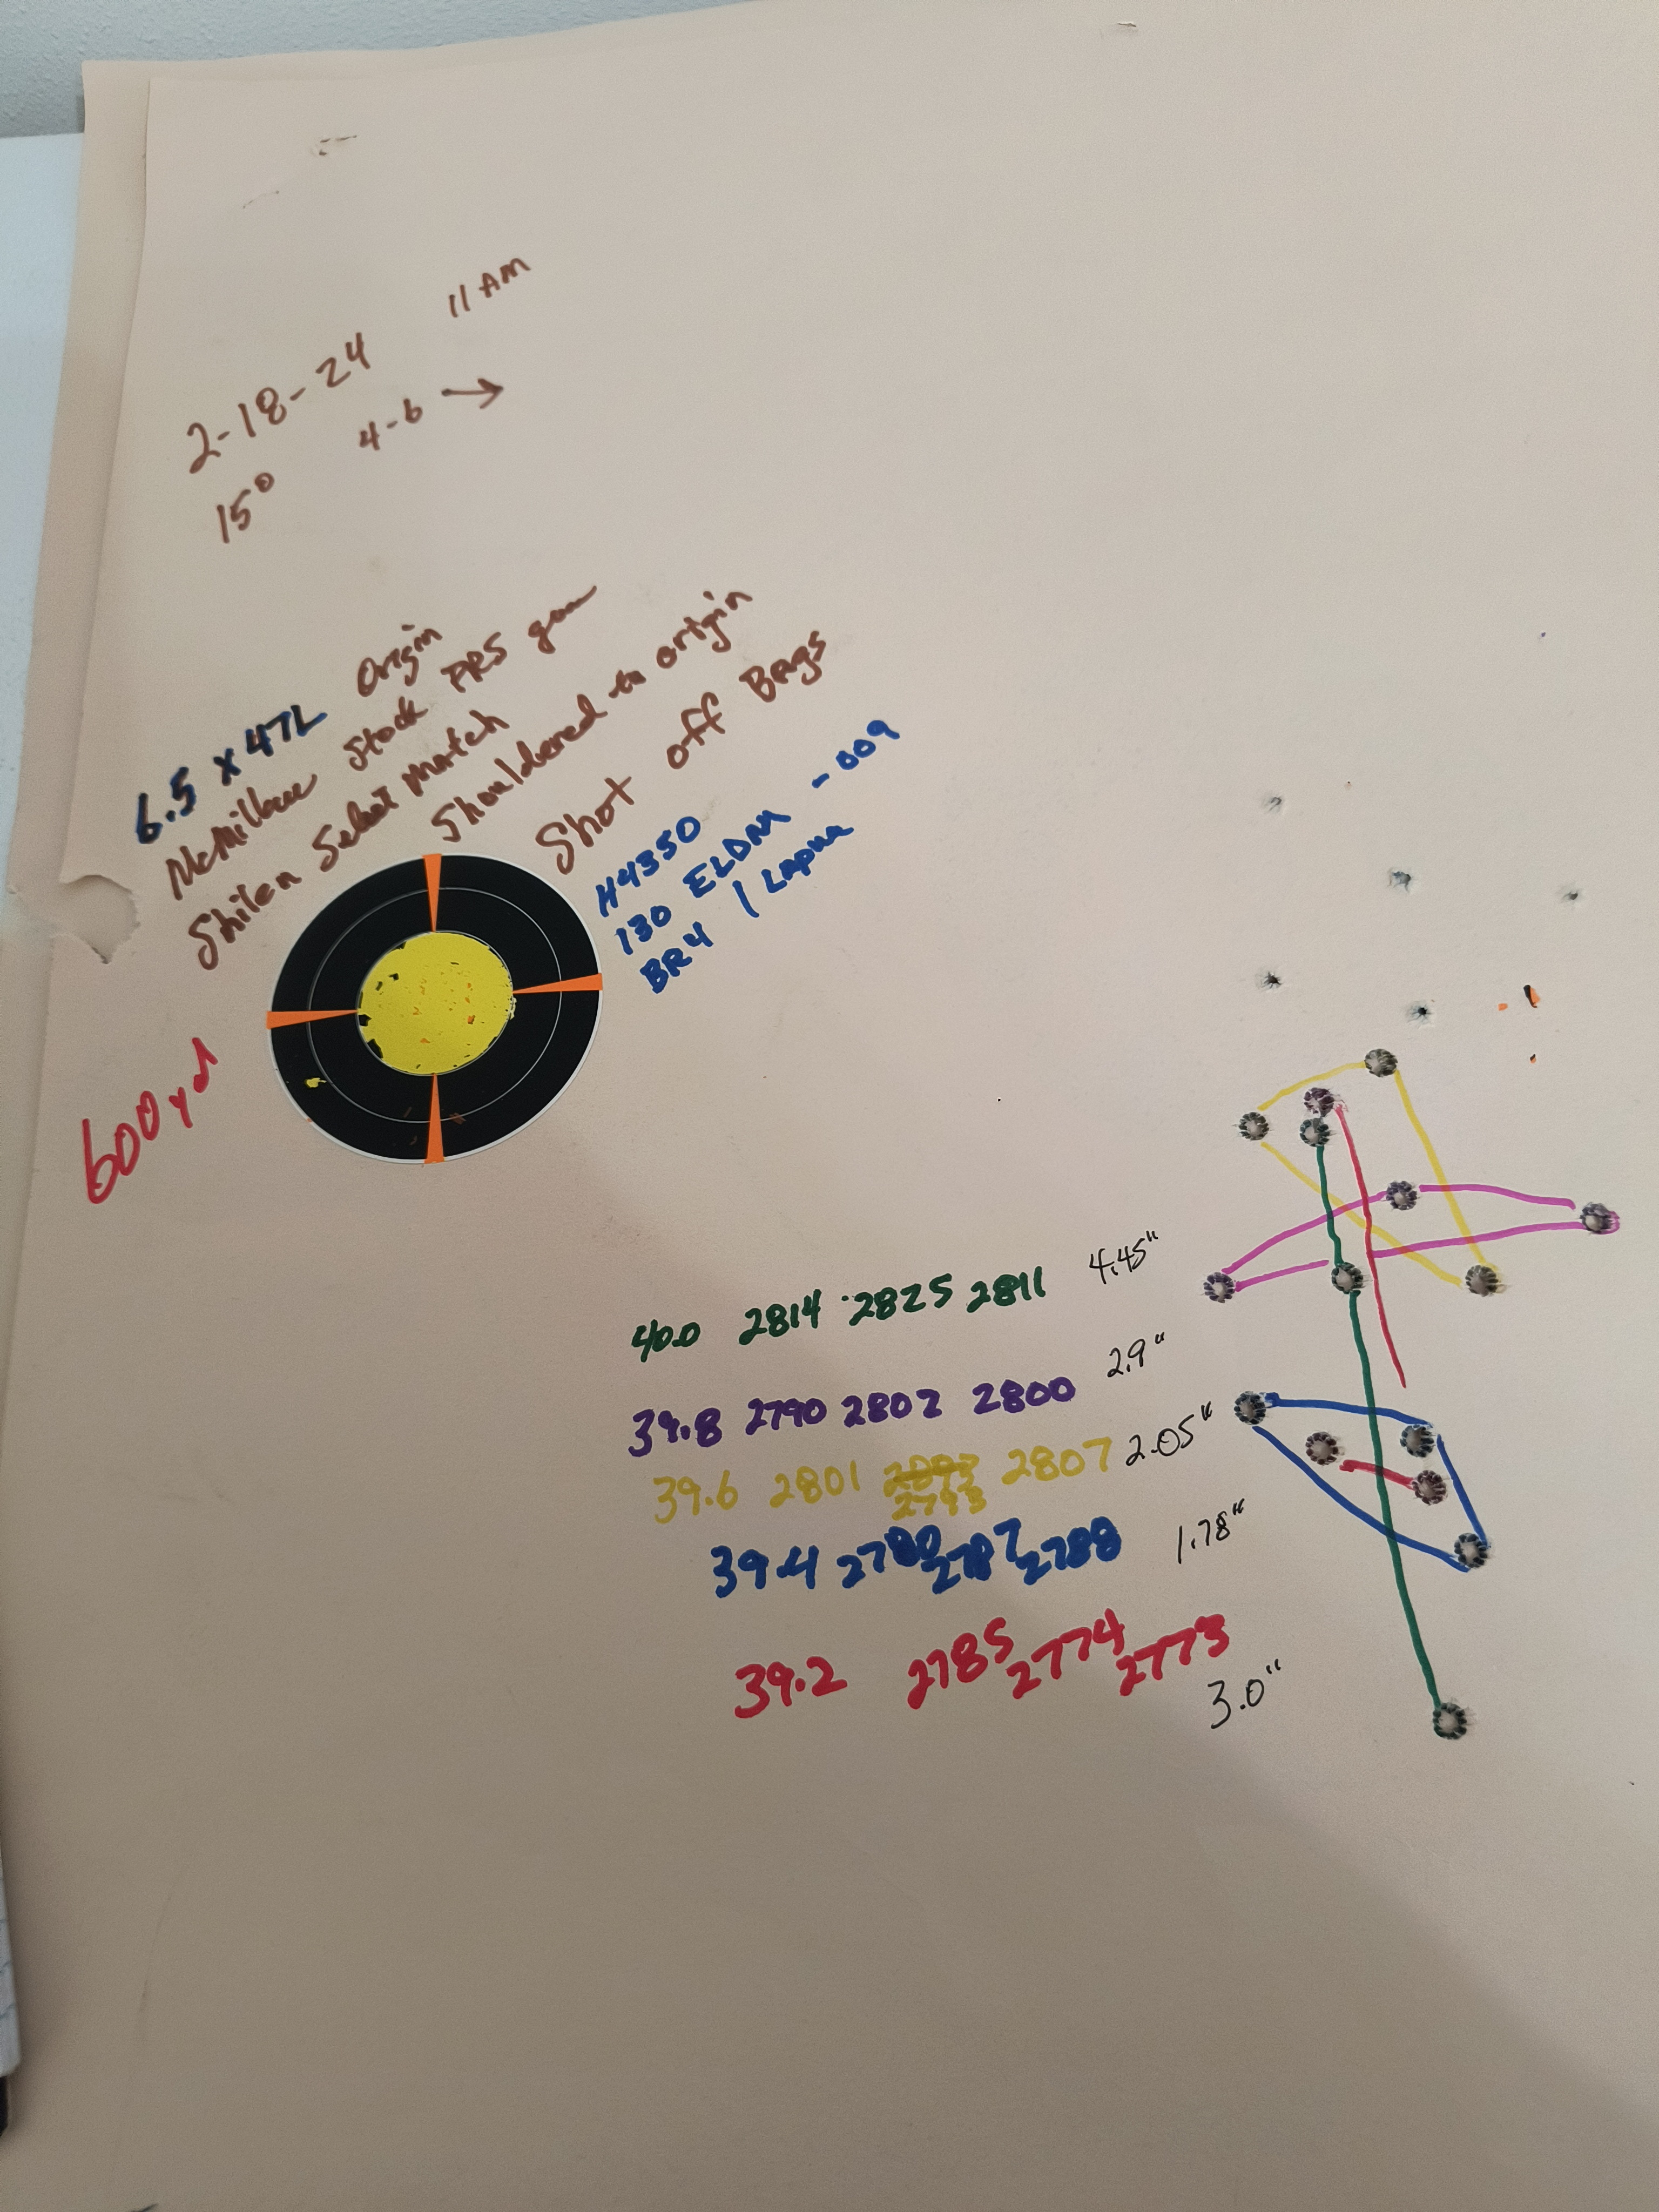 11 AM
2-18-24
4-6 →
15°
6.5 x 47L Origin
McMillan Stock PRS gun
Shilen Select Match
Shouldered to origin
Shot off Bags
H4350
130 ELDM -009
BR4 / Lapua
600 yd
40.0 2814 2825 2811 4.45"
39.8 2790 2802 2800 2.9"
39.6 2801 2793 2807 2.05"
39.4 2780 2787 2788 1.78"
39.2 2785 2774 2773 3.0"